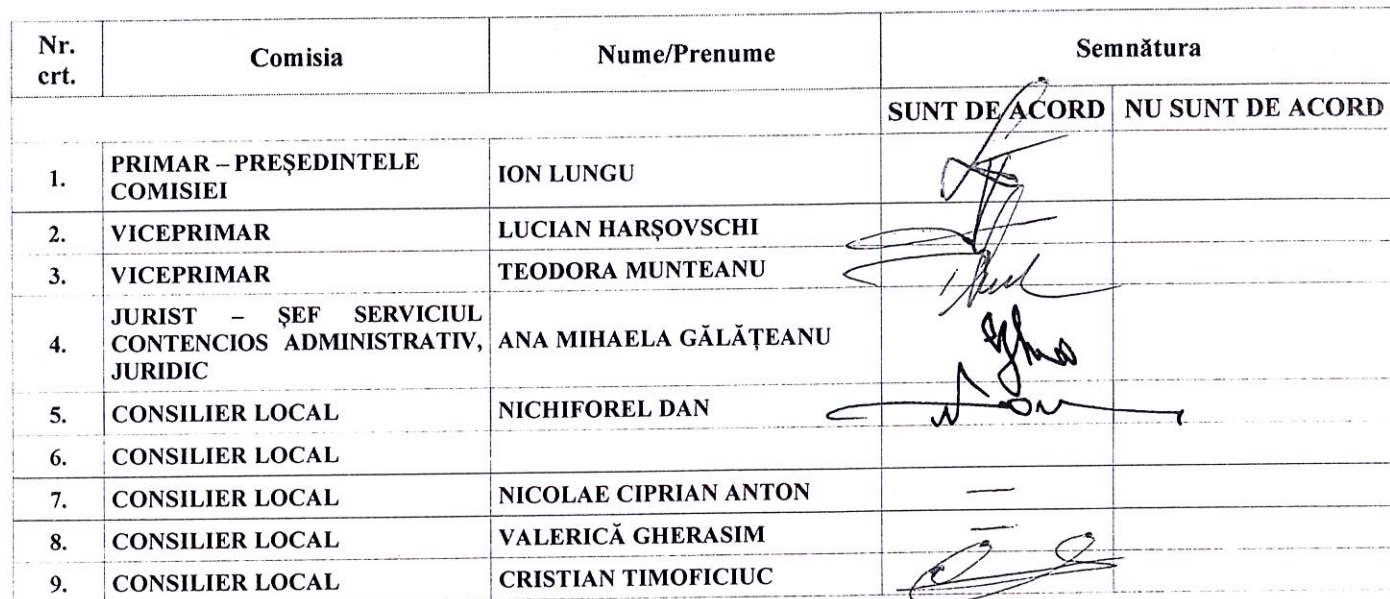 Nr. crt. Comisia Nume/Prenume Semnătura
SUNT DE ACORD NU SUNT DE ACORD
1. PRIMAR – PREȘEDINTELE COMISIEI ION LUNGU
2. VICEPRIMAR LUCIAN HARȘOVSCHI
3. VICEPRIMAR TEODORA MUNTEANU
4. JURIST – ȘEF SERVICIUL CONTENCIOS ADMINISTRATIV, JURIDIC ANA MIHAELA GĂLĂȚEANU
5. CONSILIER LOCAL NICHIFOREL DAN
6. CONSILIER LOCAL
7. CONSILIER LOCAL NICOLAE CIPRIAN ANTON —
8. CONSILIER LOCAL VALERICĂ GHERASIM —
9. CONSILIER LOCAL CRISTIAN TIMOFICIUC